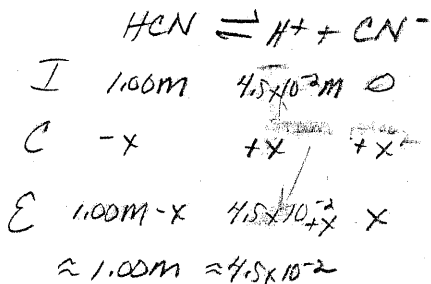 HCN ⇌ H+ + CN-
I 1.00m 4.5x10-2m 0
C -x +x +x
E 1.00m-x 4.5x10-2+x x
≈ 1.00m ≈4.5x10-2